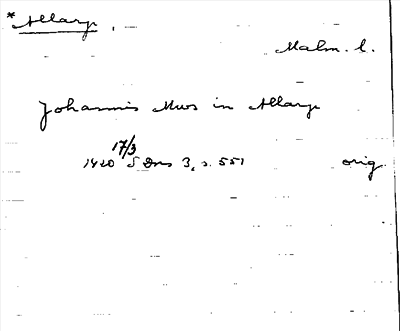 *Allarp.
Malm. l.
Johannis Mus in Allarp
17/3
1420 SDns 3, s. 551 orig.